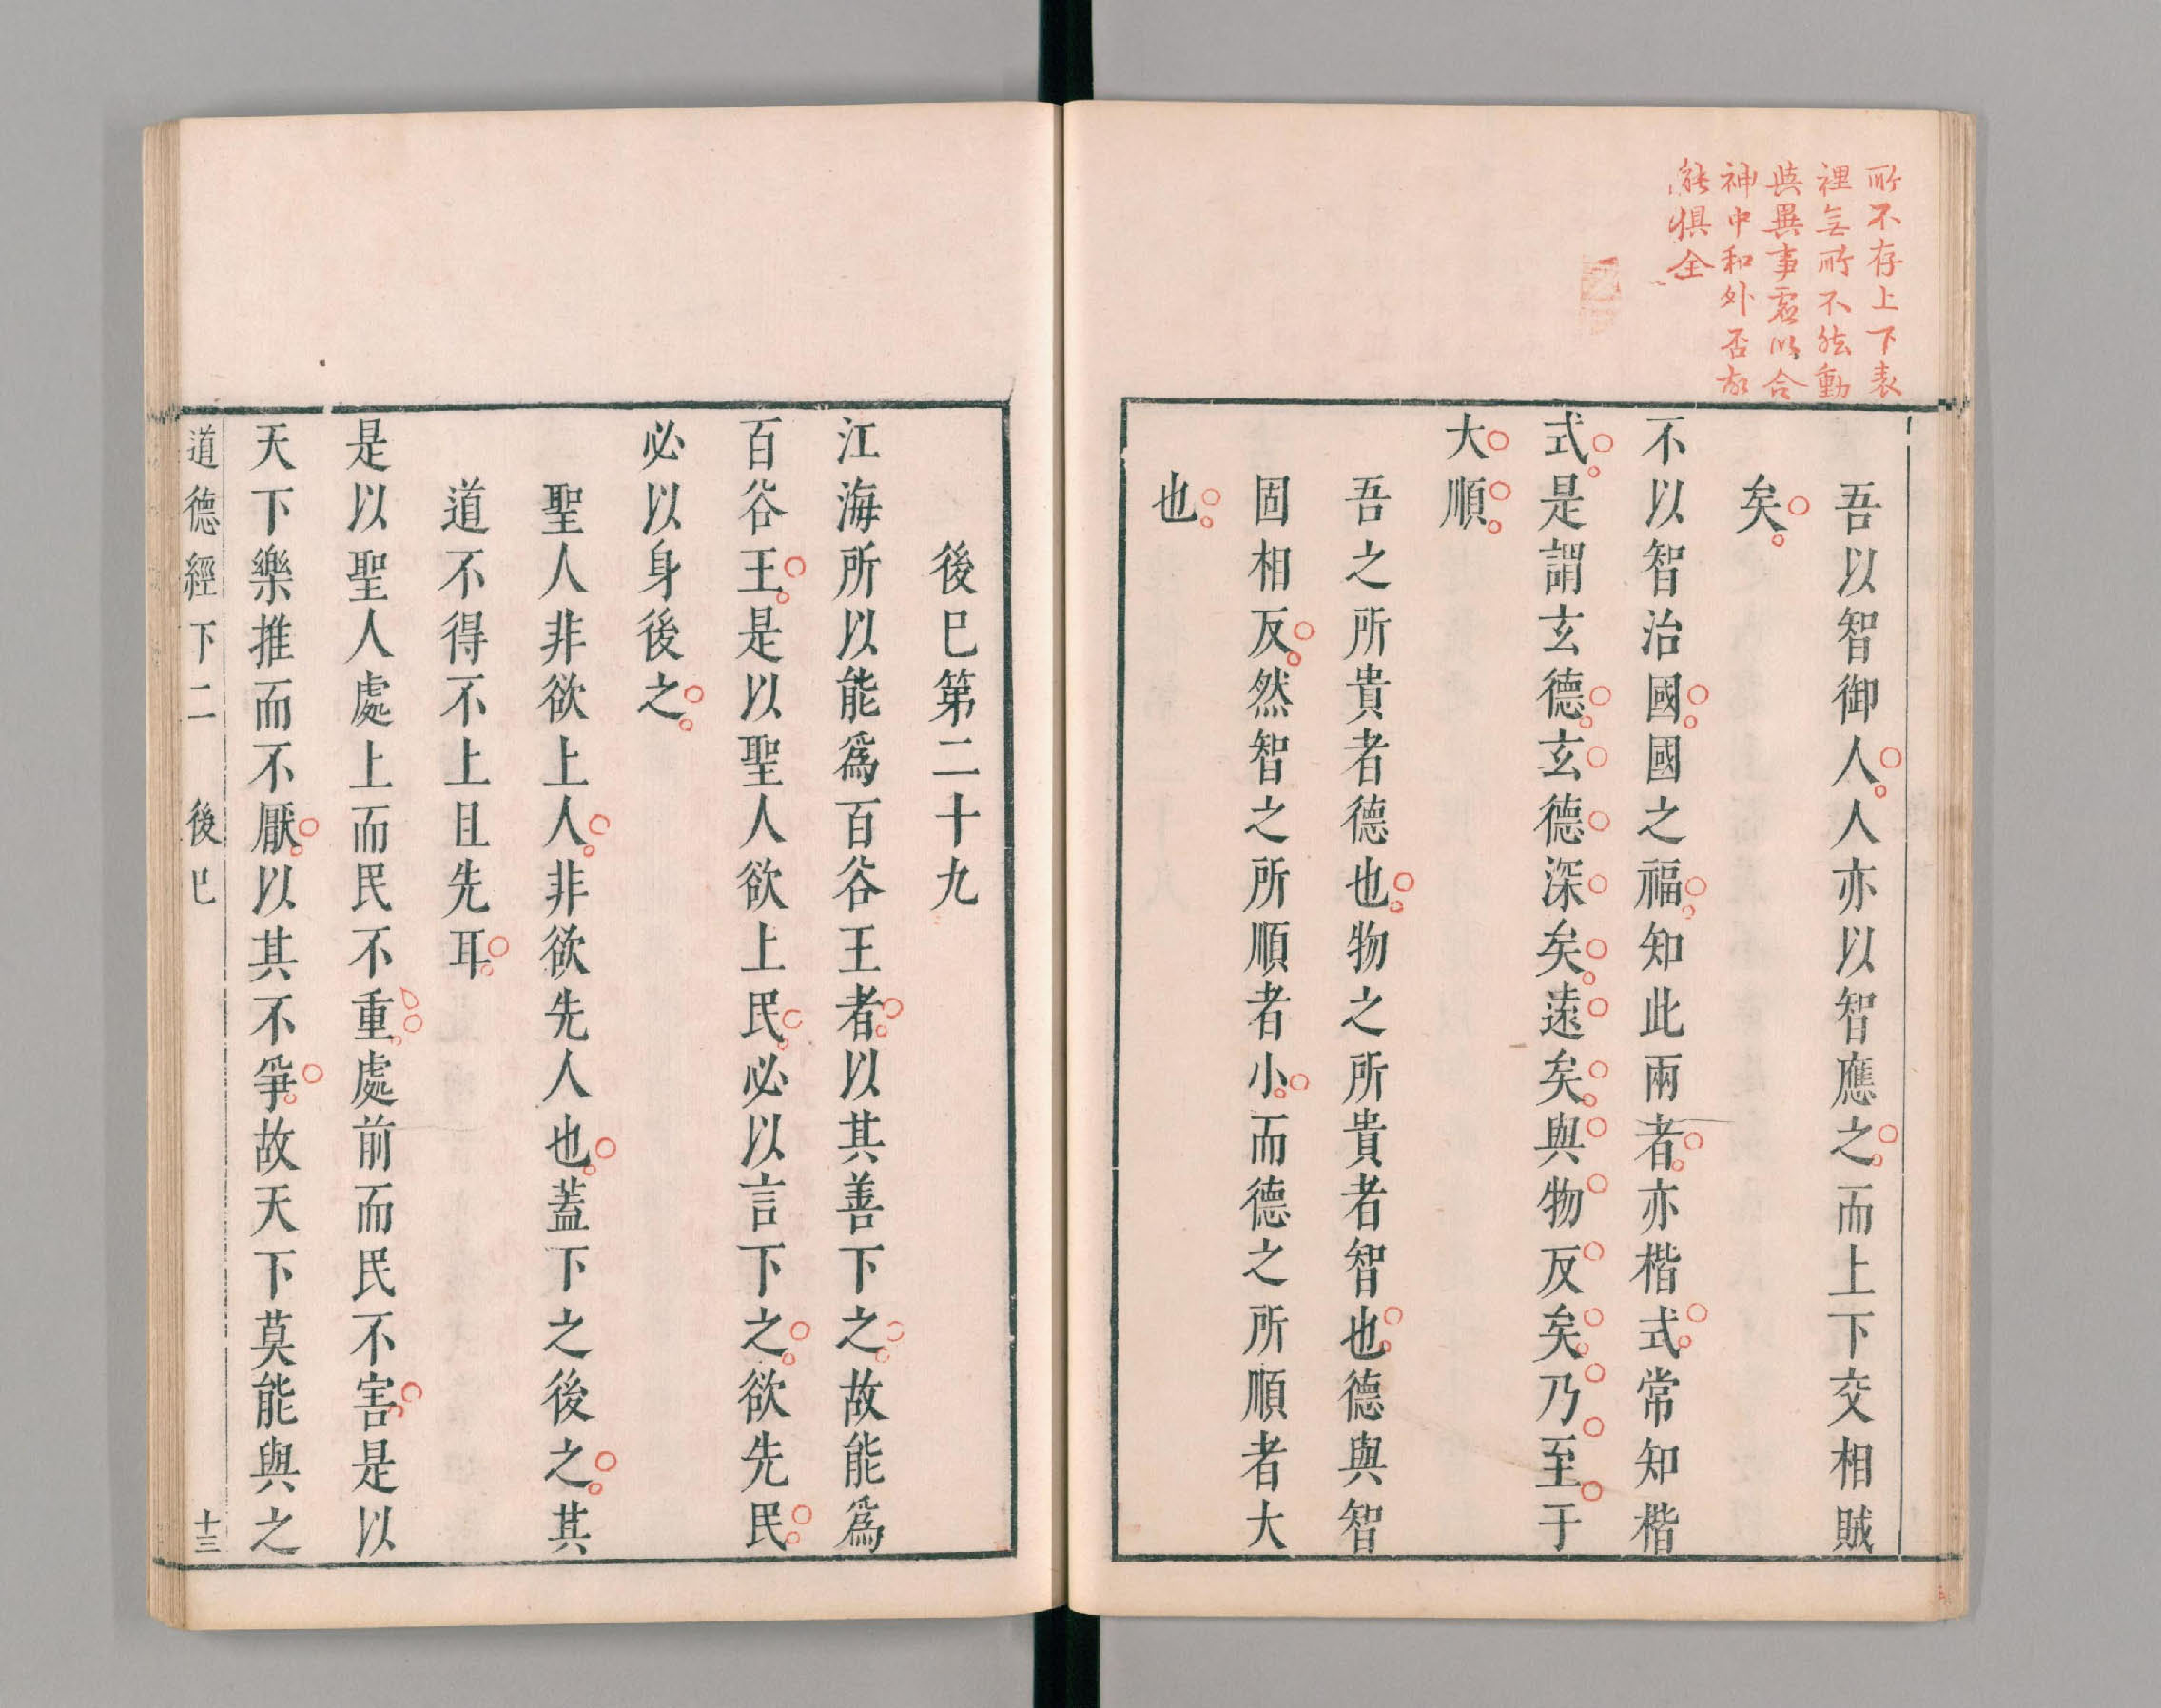 所不存上下表
裡無所不然動
與異事靈以合
神中和外否故
能俱全
吾以智御人人亦以智應之而上下交相賊
矣
不以智治國國之福知此兩者亦楷式常知楷
式是謂玄德玄德深矣遠矣與物反矣乃至于
大順
吾之所貴者德也物之所貴者智也德與智
固相反然智之所順者小而德之所順者大
也
後已第二十九
江海所以能為百谷王者以其善下之故能為
百谷王是以聖人欲上民必以言下之欲先民
必以身後之
聖人非欲上人非欲先人也蓋下之後之其
道不得不上且先耳
是以聖人處上而民不重處前而民不害是以
天下樂推而不厭以其不爭故天下莫能與之
道德經下二 後已 十三